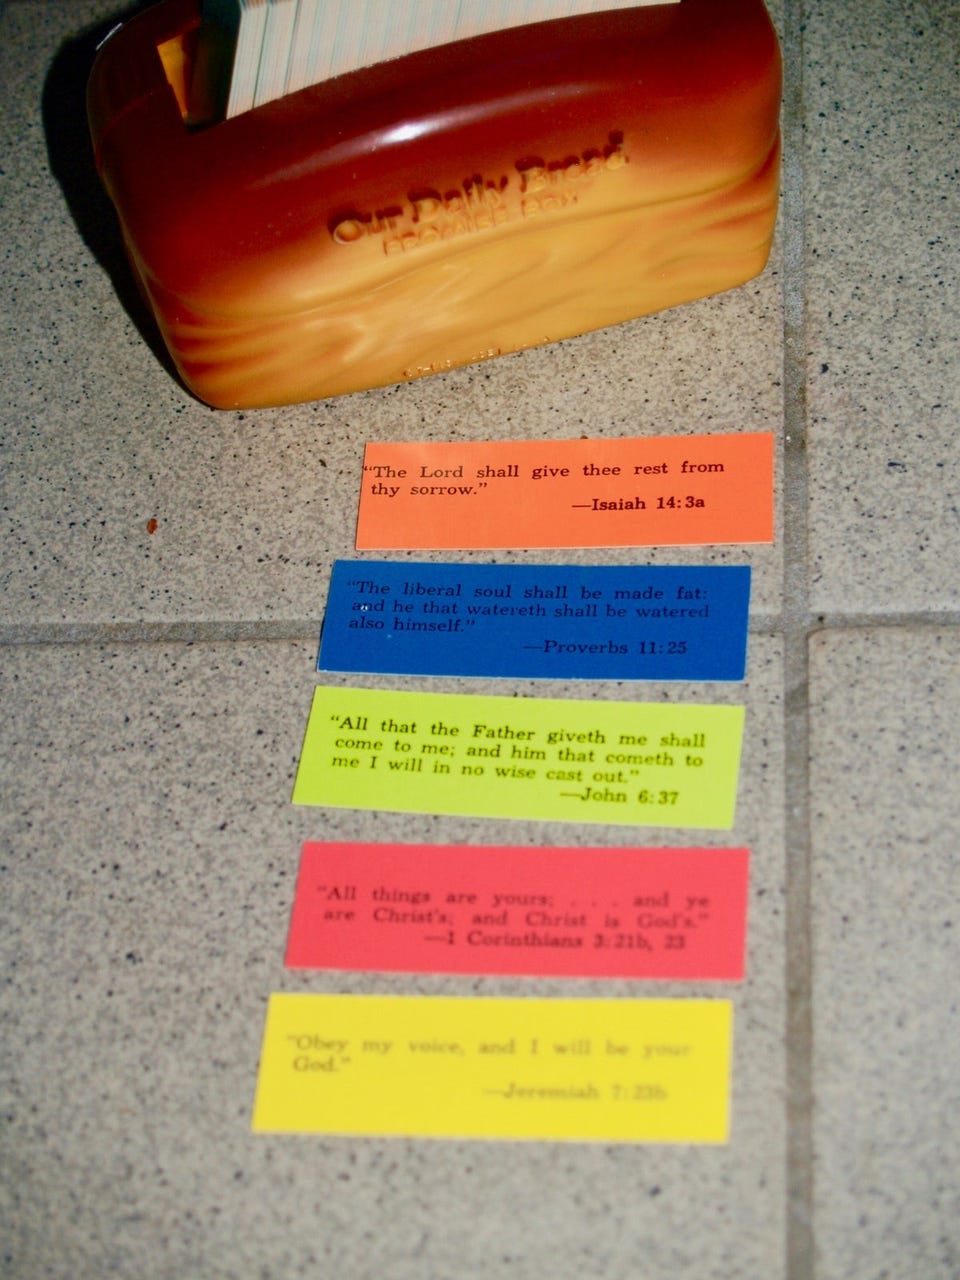 Our Daily Bread
PROMISE BOX
“The Lord shall give thee rest from
thy sorrow.”
—Isaiah 14:3a
“The liberal soul shall be made fat:
and he that watereth shall be watered
also himself.”
—Proverbs 11:25
“All that the Father giveth me shall
come to me; and him that cometh to
me I will in no wise cast out.”
—John 6:37
“All things are yours; . . . and ye
are Christ's; and Christ is God's.”
—1 Corinthians 3:21b, 23
“Obey my voice, and I will be your
God.”
—Jeremiah 7:23b